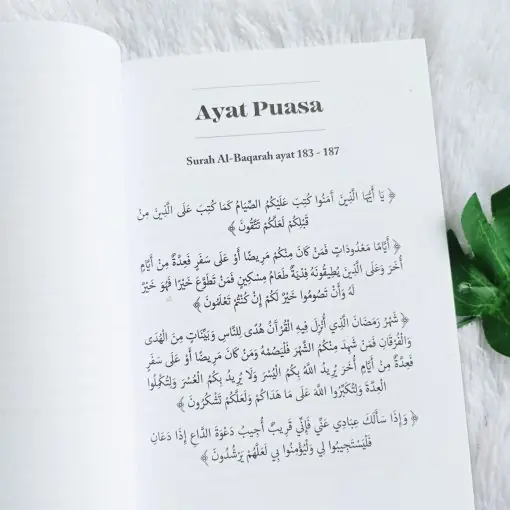 Ayat Puasa
Surah Al-Baqarah ayat 183 - 187
﴿ يَا أَيُّهَا الَّذِينَ آمَنُوا كُتِبَ عَلَيْكُمُ الصِّيَامُ كَمَا كُتِبَ عَلَى الَّذِينَ مِنْ
قَبْلِكُمْ لَعَلَّكُمْ تَتَّقُونَ ﴾
﴿ أَيَّامًا مَعْدُودَاتٍ فَمَنْ كَانَ مِنْكُمْ مَرِيضًا أَوْ عَلَى سَفَرٍ فَعِدَّةٌ مِنْ أَيَّامٍ
أُخَرَ وَعَلَى الَّذِينَ يُطِيقُونَهُ فِدْيَةٌ طَعَامُ مِسْكِينٍ فَمَنْ تَطَوَّعَ خَيْرًا فَهُوَ خَيْرٌ
لَهُ وَأَنْ تَصُومُوا خَيْرٌ لَكُمْ إِنْ كُنْتُمْ تَعْلَمُونَ ﴾
﴿ شَهْرُ رَمَضَانَ الَّذِي أُنْزِلَ فِيهِ الْقُرْآنُ هُدًى لِلنَّاسِ وَبَيِّنَاتٍ مِنَ الْهُدَى
وَالْفُرْقَانِ فَمَنْ شَهِدَ مِنْكُمُ الشَّهْرَ فَلْيَصُمْهُ وَمَنْ كَانَ مَرِيضًا أَوْ عَلَى سَفَرٍ
فَعِدَّةٌ مِنْ أَيَّامٍ أُخَرَ يُرِيدُ اللَّهُ بِكُمُ الْيُسْرَ وَلَا يُرِيدُ بِكُمُ الْعُسْرَ وَلِتُكْمِلُوا
الْعِدَّةَ وَلِتُكَبِّرُوا اللَّهَ عَلَى مَا هَدَاكُمْ وَلَعَلَّكُمْ تَشْكُرُونَ ﴾
﴿ وَإِذَا سَأَلَكَ عِبَادِي عَنِّي فَإِنِّي قَرِيبٌ أُجِيبُ دَعْوَةَ الدَّاعِ إِذَا دَعَانِ
فَلْيَسْتَجِيبُوا لِي وَلْيُؤْمِنُوا بِي لَعَلَّهُمْ يَرْشُدُونَ ﴾